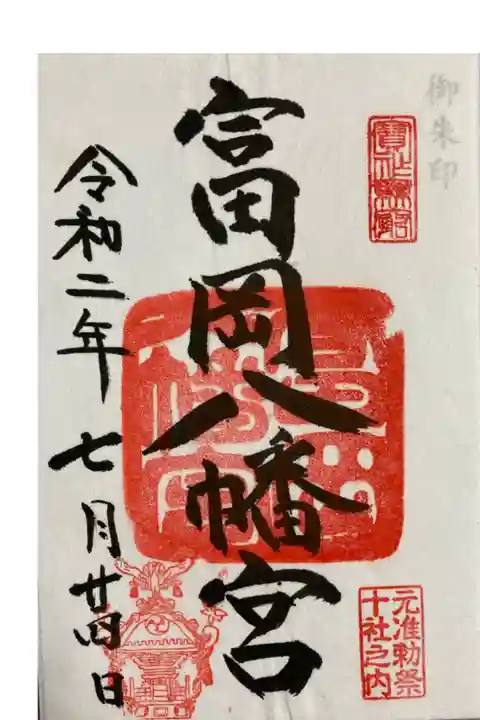 御朱印
元准勅祭
十社之内
富岡八幡宮
令和二年七月廿四日